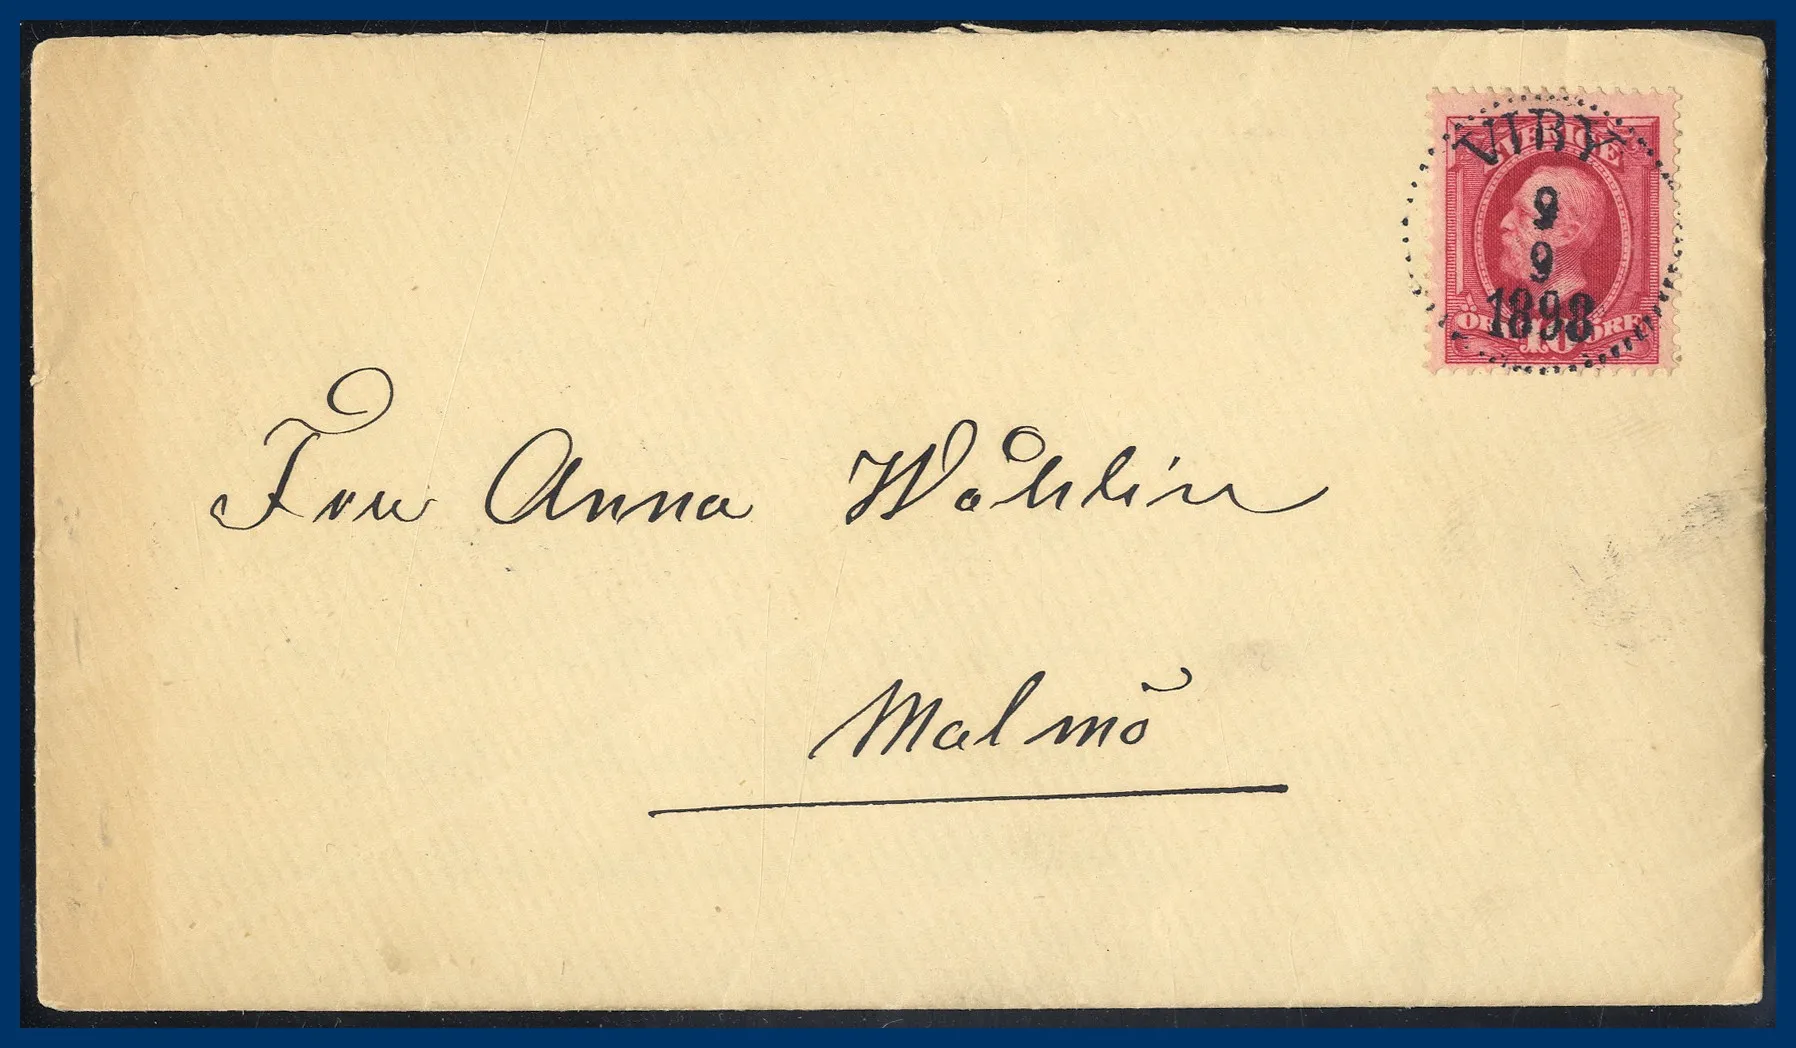 VIBY
SVERIGE
9
9
1898
ÖRE 10 ÖRE
Fru Anna Wåhlin
Malmö